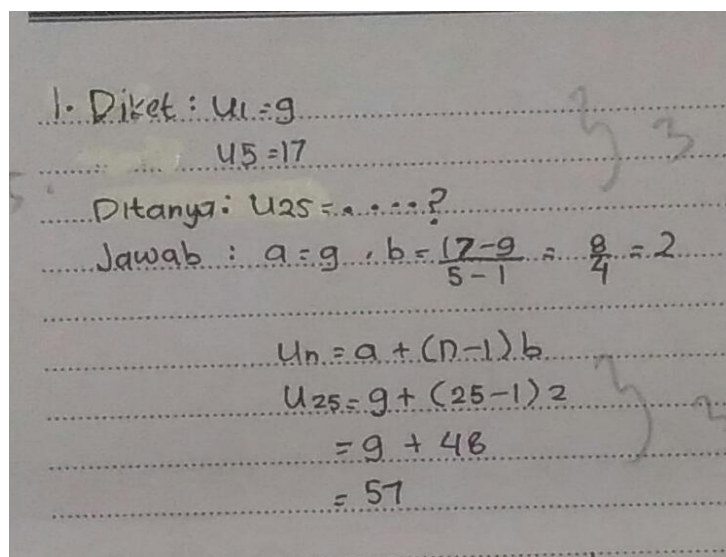 1. Diket : U1 = 9
U5 = 17
Ditanya : U25 = .....?
Jawab : a = 9 , b = 17-9/5-1 = 8/4 = 2
Un = a + (n-1) b
U25 = 9 + (25-1) 2
= 9 + 48
= 57
3